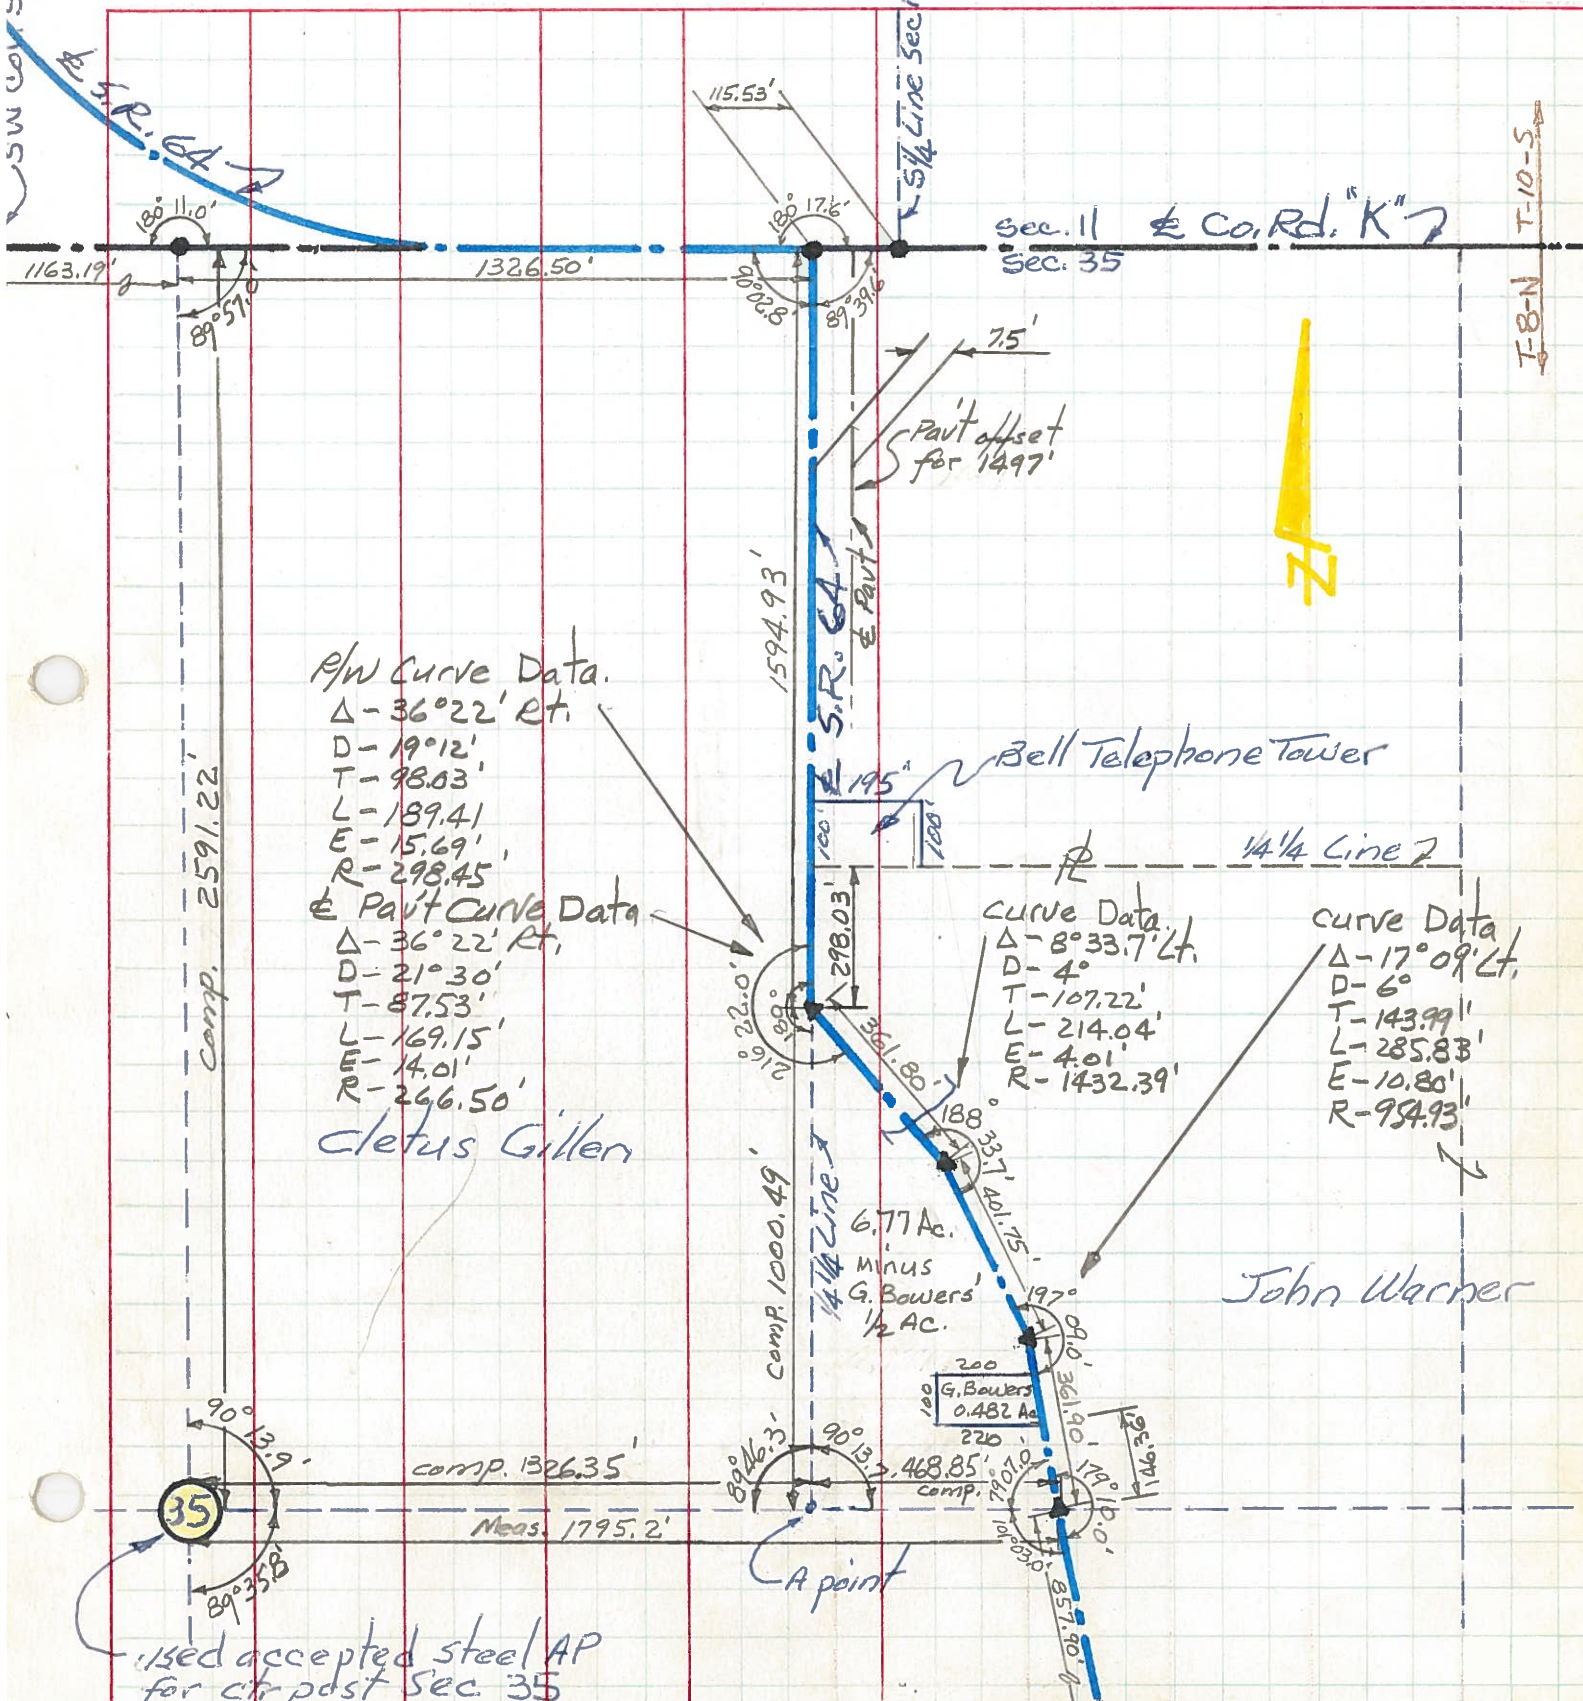 SW Cor. S
℄ S.R. 64
115.53'
S¼ Line Sec
T-10-S
T-8-N
180° 11.0'
180° 17.6'
Sec. 11 ℄ Co. Rd. "K"
Sec. 35
1163.19'
1326.50'
89°57.0'
90°02.8'
89°39.6'
7.5'
Pav't offset
for 1497'
N
℄ Pav't
℄ S.R. 64
1594.93'
comp. 2591.22'
R/W Curve Data.
Δ - 36°22' Rt.
D - 19°12'
T - 98.03'
L - 189.41
E - 15.69'
R - 298.45'
℄ Pav't Curve Data
Δ - 36°22' Rt.
D - 21°30'
T - 87.53'
L - 169.15'
E - 14.01'
R - 266.50'
Cletus Gillen
Bell Telephone Tower
195'
100'
100'
¼ ¼ Line
PL
298.03'
216° 22.0'
Curve Data
Δ - 8°33.7' Lt.
D - 4°
T - 107.22'
L - 214.04'
E - 4.01'
R - 1432.39'
Curve Data
Δ - 17°09' Lt.
D - 6°
T - 143.99'
L - 285.83'
E - 10.80'
R - 954.93'
361.80'
188° 33.7'
401.75'
comp. 1000.49'
¼ ¼ Line
6.77 Ac.
minus
G. Bowers'
½ Ac.
197° 09.0'
John Warner
361.90'
200
100
G. Bowers
0.482 Ac
220
146.36'
90° 13.9'
comp. 1326.35'
89°46.3'
90° 13.
468.85'
comp.
79°07.0'
179° 10.0'
101°03.0'
35
Meas. 1795.2'
A point
89°35.8'
857.90'
used accepted steel AP
for ctr post Sec. 35